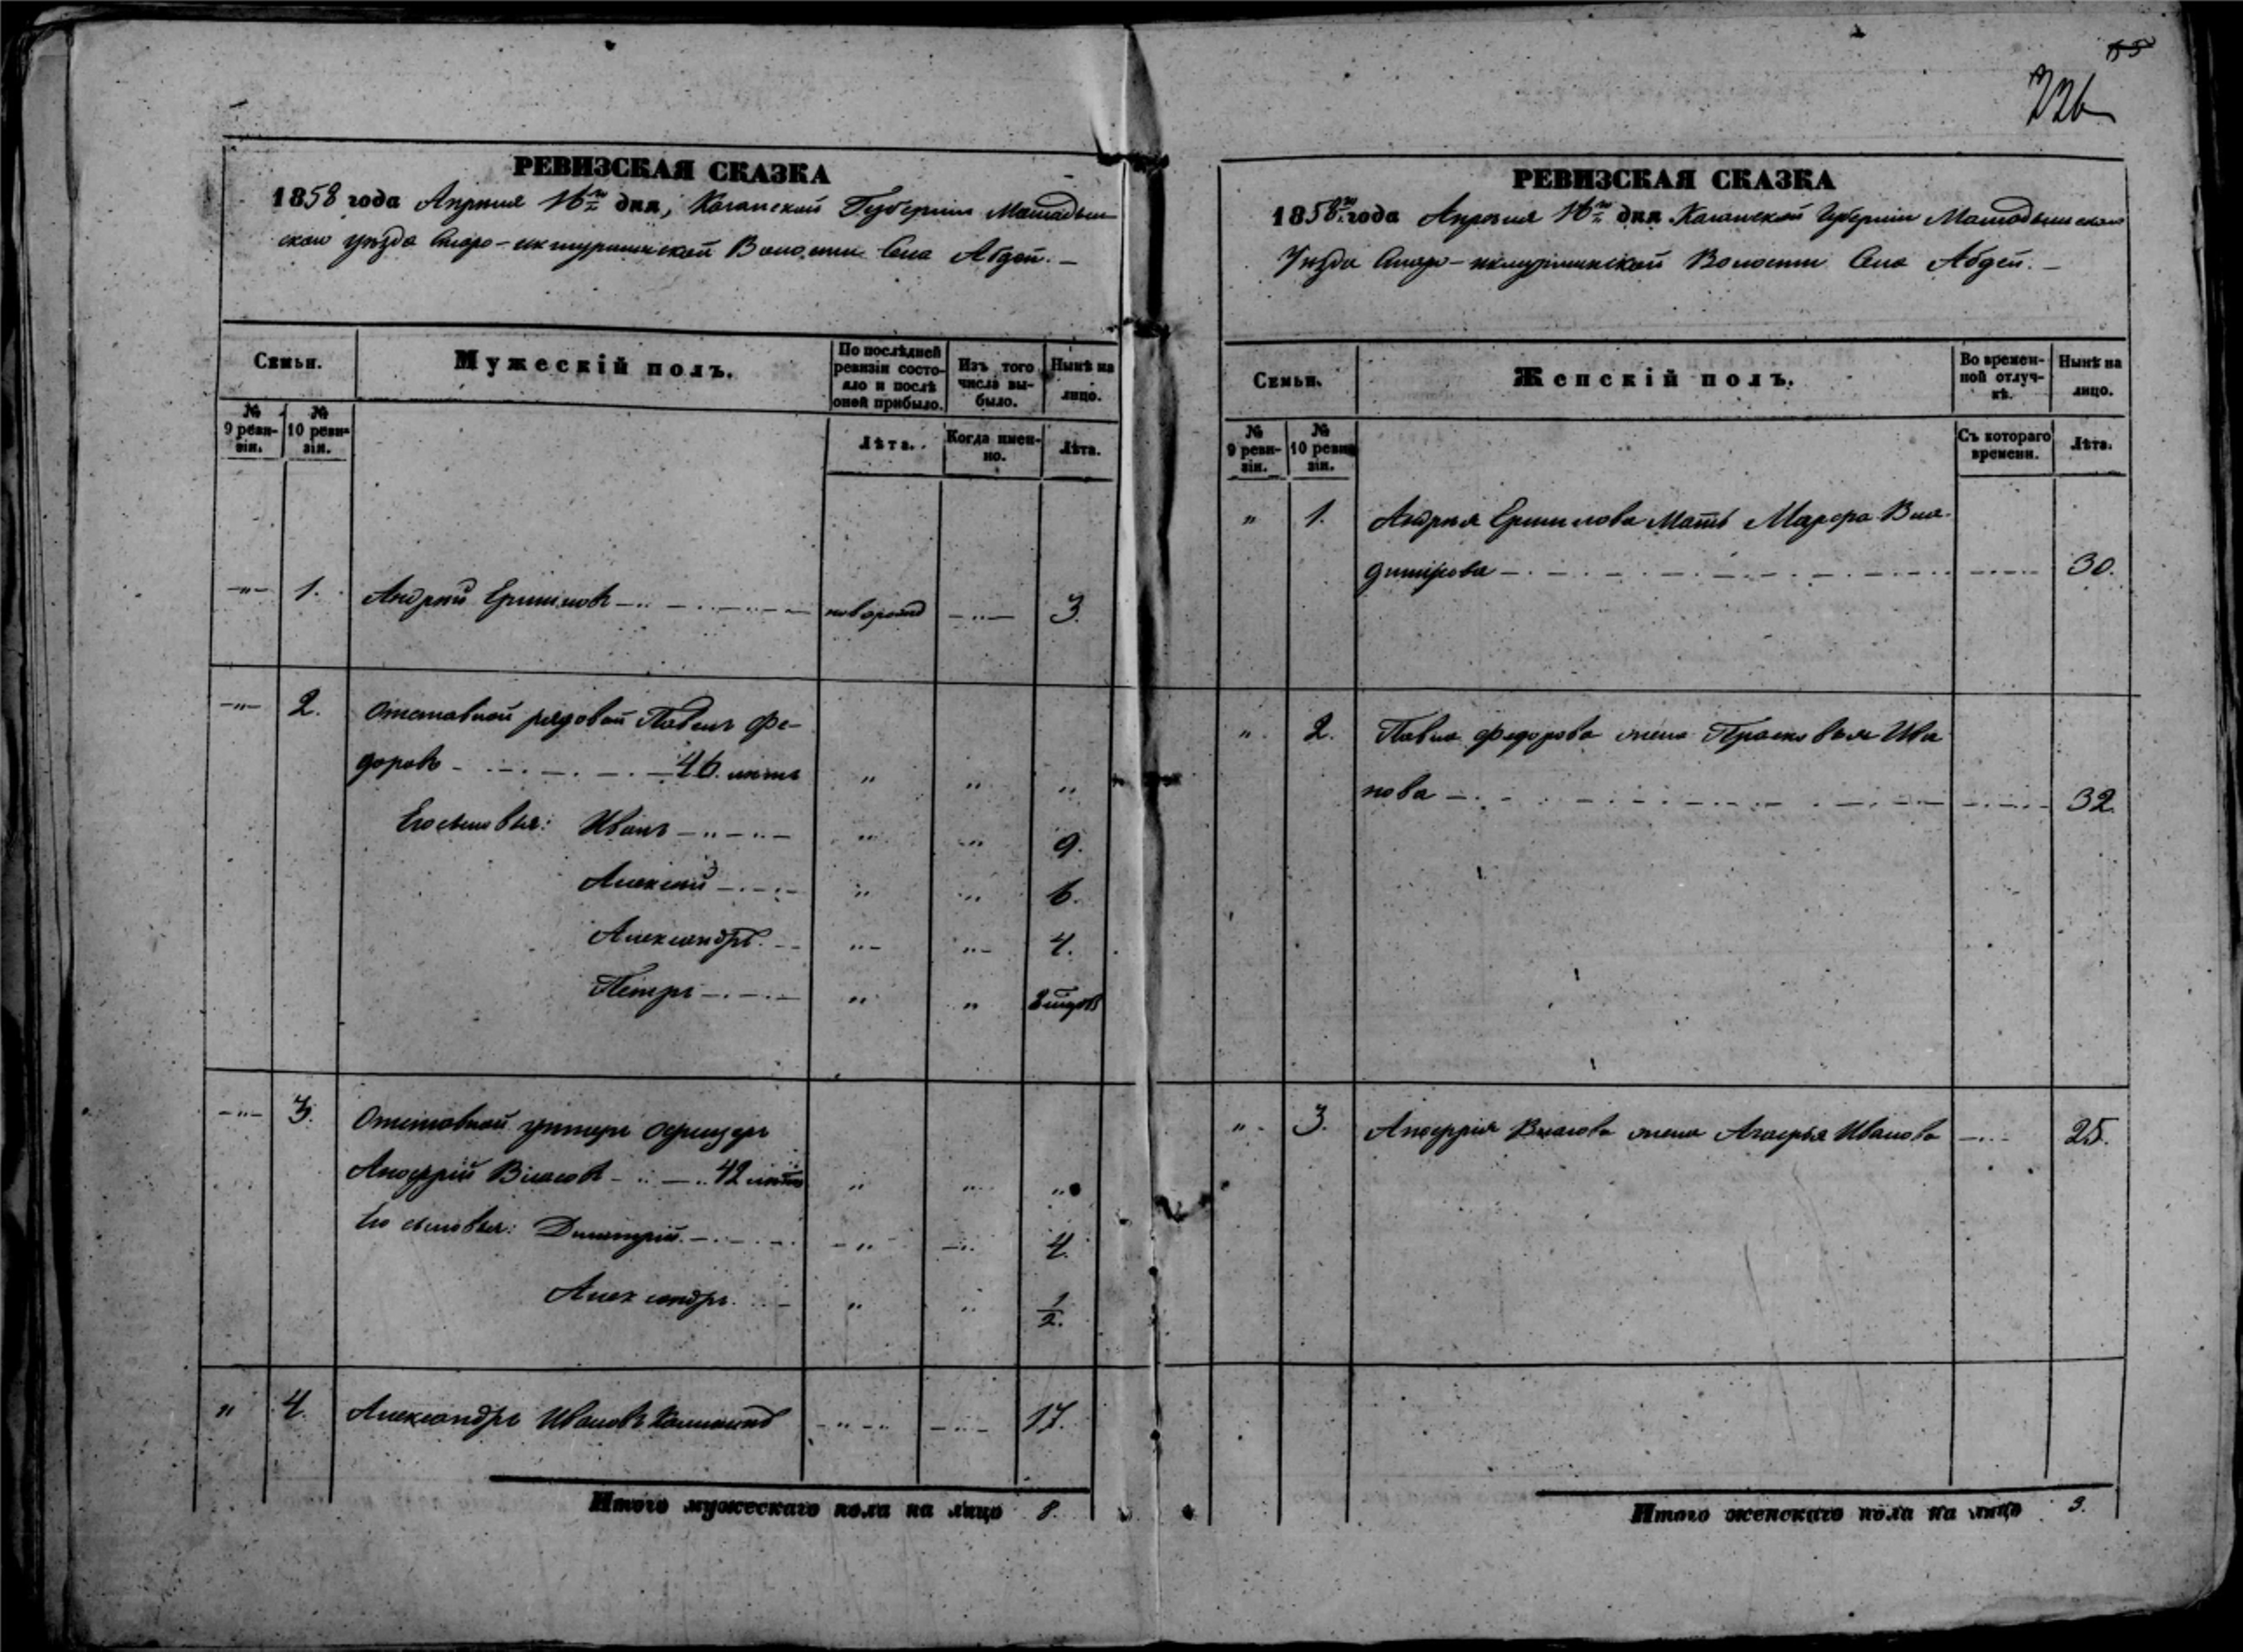 55
226
РЕВИЗСКАЯ СКАЗКА
1858 года Апрѣля 16го дня, Казанской Губерніи Мамадыш-
скаго уѣзда Старо-икшурминской Волости Села Абдей. —
Семьи.
Мужескій полъ.
По послѣдней ревизіи состояло и послѣ оной прибыло.
Изъ того числа выбыло.
Нынѣ на лицо.
№ 9 ревизіи.
№ 10 ревизіи.
Лѣта.
Когда именно.
Лѣта.
—"— 1. Андрей Ермиловъ новорожд —"— 3.
—"— 2. Отставной рядовой Павелъ Фе-
доровъ 46 лѣтъ " " "
Его сыновья: Иванъ " " 9.
Алексѣй " " 6.
Александръ " " 4.
Петръ " "
—"— 3. Отставной унтеръ офицеръ
Аноффрій Власовъ 42 лѣтъ " " "
Его сыновья: Димитрій " " 4.
Александръ " " 1/2.
" 4. Александръ Ивановъ " " 17.
Итого мужескаго пола на лицо 8.
РЕВИЗСКАЯ СКАЗКА
1858го года Апрѣля 16го дня Казанской Губерніи Мамадышскаго
Уѣзда Старо-икшурминской Волости Села Абдей. —
Семьи.
Женскій полъ.
Во временной отлучкѣ.
Нынѣ на лицо.
№ 9 ревизіи.
№ 10 ревизіи.
Съ котораго времени.
Лѣта.
" 1. Андрея Ермилова Мать Марфа Вла-
димірова 30.
" 2. Павла Федорова жена Прасковья Ива
нова 32.
" 3. Аноффрія Власова жена Агафья Иванова 25.
Итого женскаго пола на лицо 3.